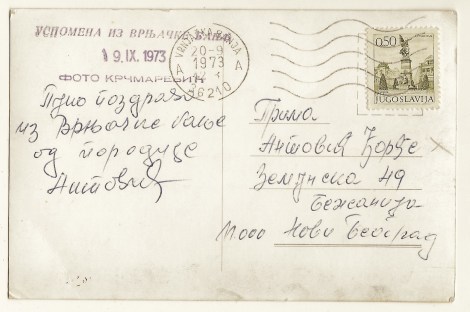 УСПОМЕНА ИЗ ВРЊАЧКЕ БАЊЕ
19. IX. 1973
ФОТО КРЧМАРЕВИЋ
VRNJAČKA BANJA
20-9
1973
A A
36210
0,50
JUGOSLAVIJA
Пуно поздрава
из Врњачке бање
од породице
Антовић
Прима
Антовић Ђорђе
Земунска 49
Бежанија
11.000 Нови Београд